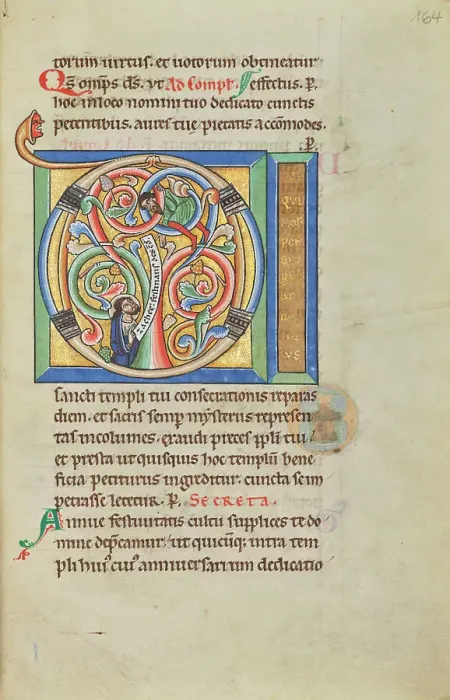 164
torum uirtus. et uotorum obtineatur
Qs omps ds. ut Ad Compl. effectus. P.
hoc in loco nomini tuo dedicato cunctis
petentibus. aures tue pietatis accomodes.
P.
zachee festinans desc
QUI
NOB
PER
SIN
US
sancti templi tui consecrationis reparas
diem. et sacris semp mysteriis represen
tas incolumes. exaudi preces ppli tui.
et presta ut quisquis hoc templū bene
ficia petiturus ingreditur. cuncta se im
petrasse letetur. P. SECRETA.
Annue festiuitatis cultu supplices te do
mine depcamur. ut quicūq; intra tem
pli hui' cui' anniuersarium dedicatio